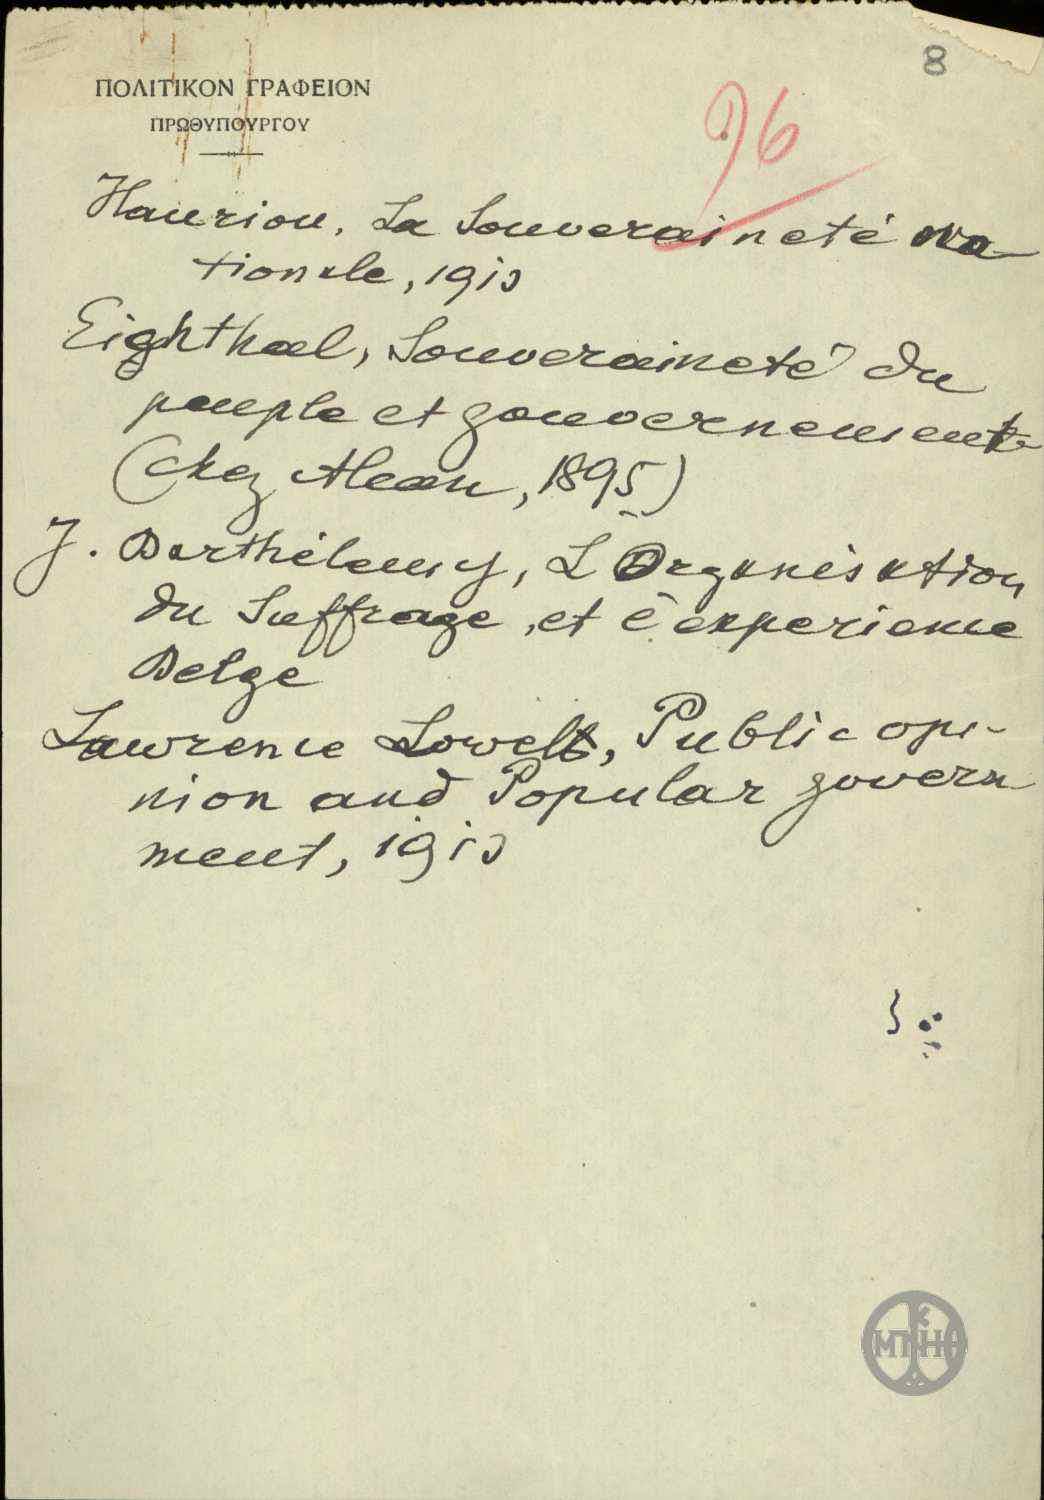 8
ΠΟΛΙΤΙΚΟΝ ΓΡΑΦΕΙΟΝ
ΠΡΩΘΥΠΟΥΡΓΟΥ
96
Hauriou, La Souveraineté na
tionale, 1913
Eighthal, Souveraineté du
peuple et gouvernement
(chez Alcan, 1895)
J. Barthélemy, L'Organisation
du Suffrage, et l'experience
Belge
Lawrence Lowell, Public opi-
nion and Popular govern
ment, 1913